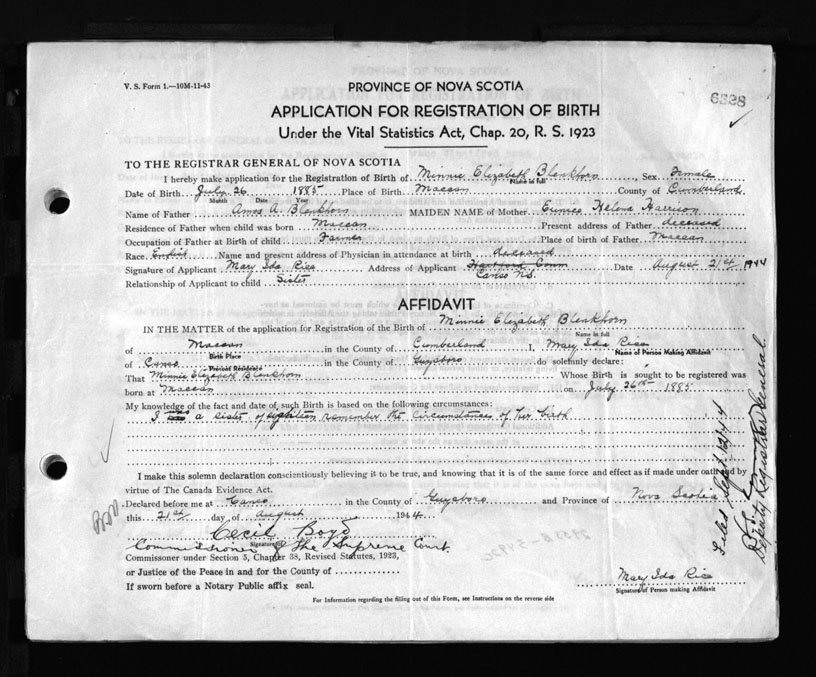 V. S. Form 1.—10M-11-43
PROVINCE OF NOVA SCOTIA
6828
APPLICATION FOR REGISTRATION OF BIRTH
Under the Vital Statistics Act, Chap. 20, R. S. 1923
TO THE REGISTRAR GENERAL OF NOVA SCOTIA
I hereby make application for the Registration of Birth of Minnie Elizabeth Blenkhorn Sex Female
Name in full
Date of Birth July 26 1885 Place of Birth Maccan County of Cumberland
Month Date Year
Name of Father Amos A. Blenkhorn MAIDEN NAME of Mother Eunice Helena Harrison
Residence of Father when child was born Maccan Present address of Father deceased
Occupation of Father at Birth of child Farmer Place of birth of Father Maccan
Race English Name and present address of Physician in attendance at birth deceased
Signature of Applicant Mary Ida Rice Address of Applicant Hartford Conn Date August 21st 1944
Canso N.S.
Relationship of Applicant to child Sister
AFFIDAVIT
IN THE MATTER of the application for Registration of the Birth of Minnie Elizabeth Blenkhorn
Name in full
of Maccan in the County of Cumberland I, Mary Ida Rice
Birth Place Name of Person Making Affidavit
of Canso in the County of Guysboro do solemnly declare:
Present Residence
That Minnie Elizabeth Blenkhorn Whose Birth is sought to be registered was
born at Maccan on July 26th 1885
My knowledge of the fact and date of such Birth is based on the following circumstances:
I was a sister of remember the circumstances of her birth
I make this solemn declaration conscientiously believing it to be true, and knowing that it is of the same force and effect as if made under oath and by
virtue of The Canada Evidence Act.
Declared before me at Canso in the County of Guysboro and Province of Nova Scotia
this 21st day of August 1944.
Cecil Boyd
Signature
Commissioner of The Supreme Court
Commissioner under Section 5, Chapter 38, Revised Statutes, 1923,
or Justice of the Peace in and for the County of
If sworn before a Notary Public affix seal.
Mary Ida Rice
Signature of Person making Affidavit
For Information regarding the filling out of this Form, see Instructions on the reverse side
Filed Sept 12/44
Deputy Registrar General.